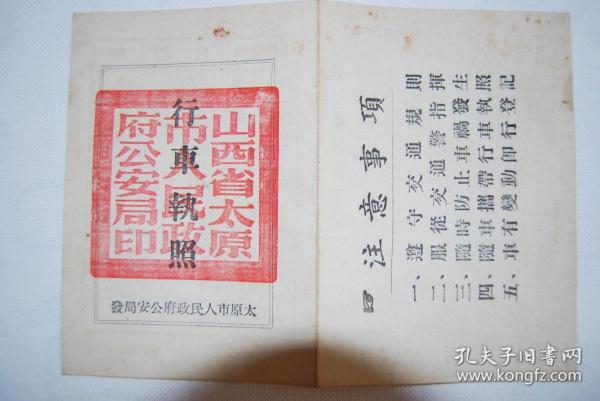 行車執照
山西省太原
市人民政
府公安局印
太原市人民政府公安局發
注意事項
一、遵守交通規則
二、服從交通警指揮
三、隨時防止車禍發生
四、隨車攜帶行車執照
五、車有變動即行登記
孔夫子旧书网
www.kongfz.com